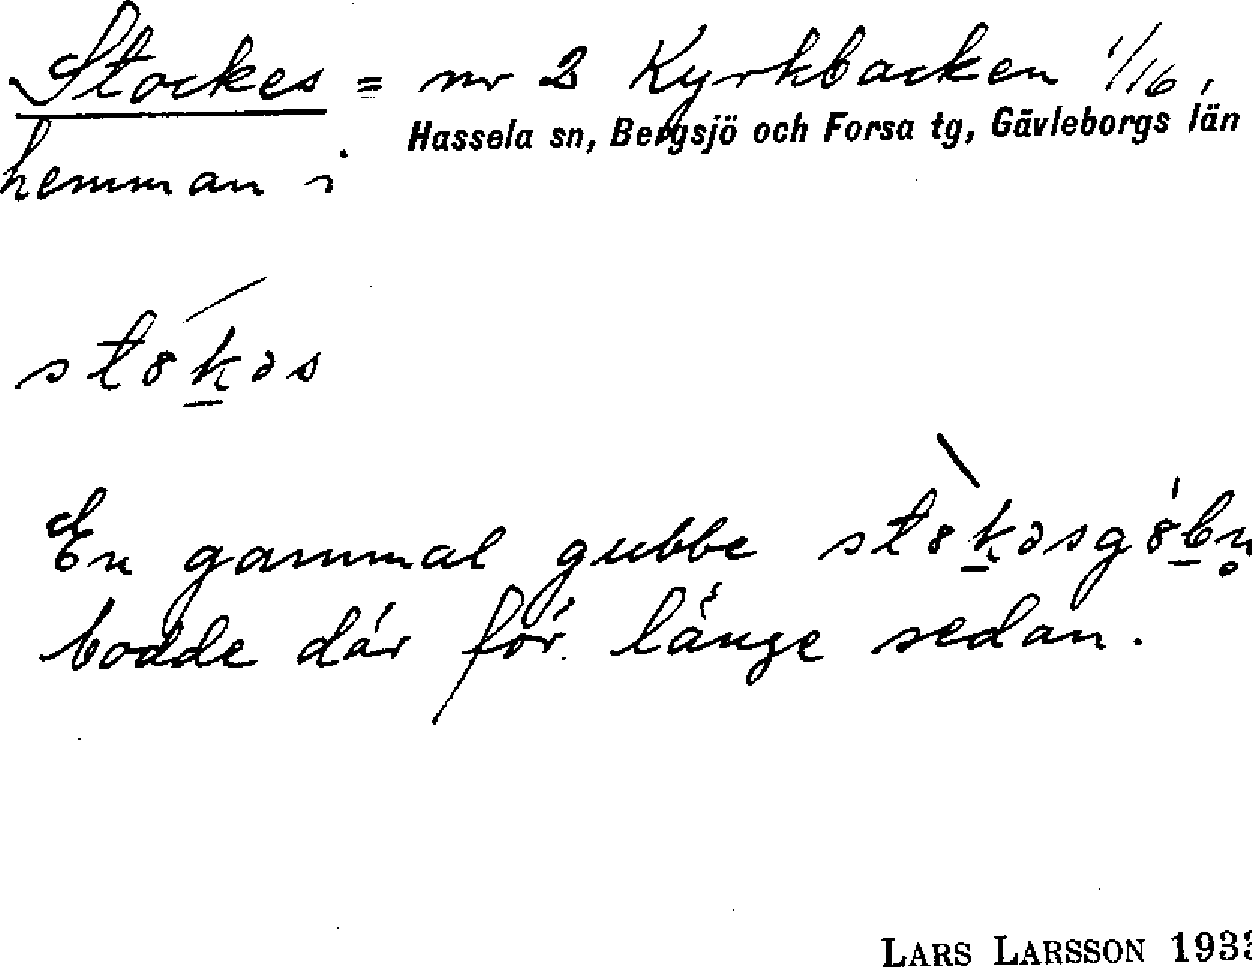 Stockes = nr 2 Kyrkbacken 1/16,
Hassela sn, Bergsjö och Forsa tg, Gävleborgs län
hemman i
st8kəs
En gammal gubbe st8kəsg8bn̥
bodde där för länge sedan.
LARS LARSSON 1933